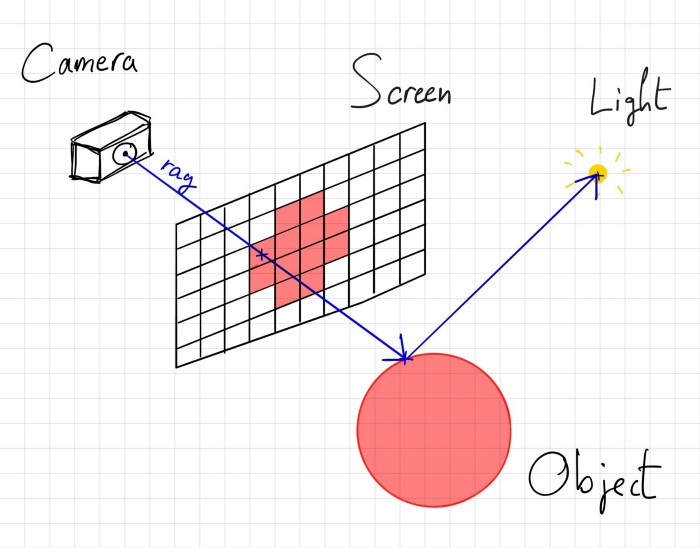 Camera
Screen
Light
ray
Object